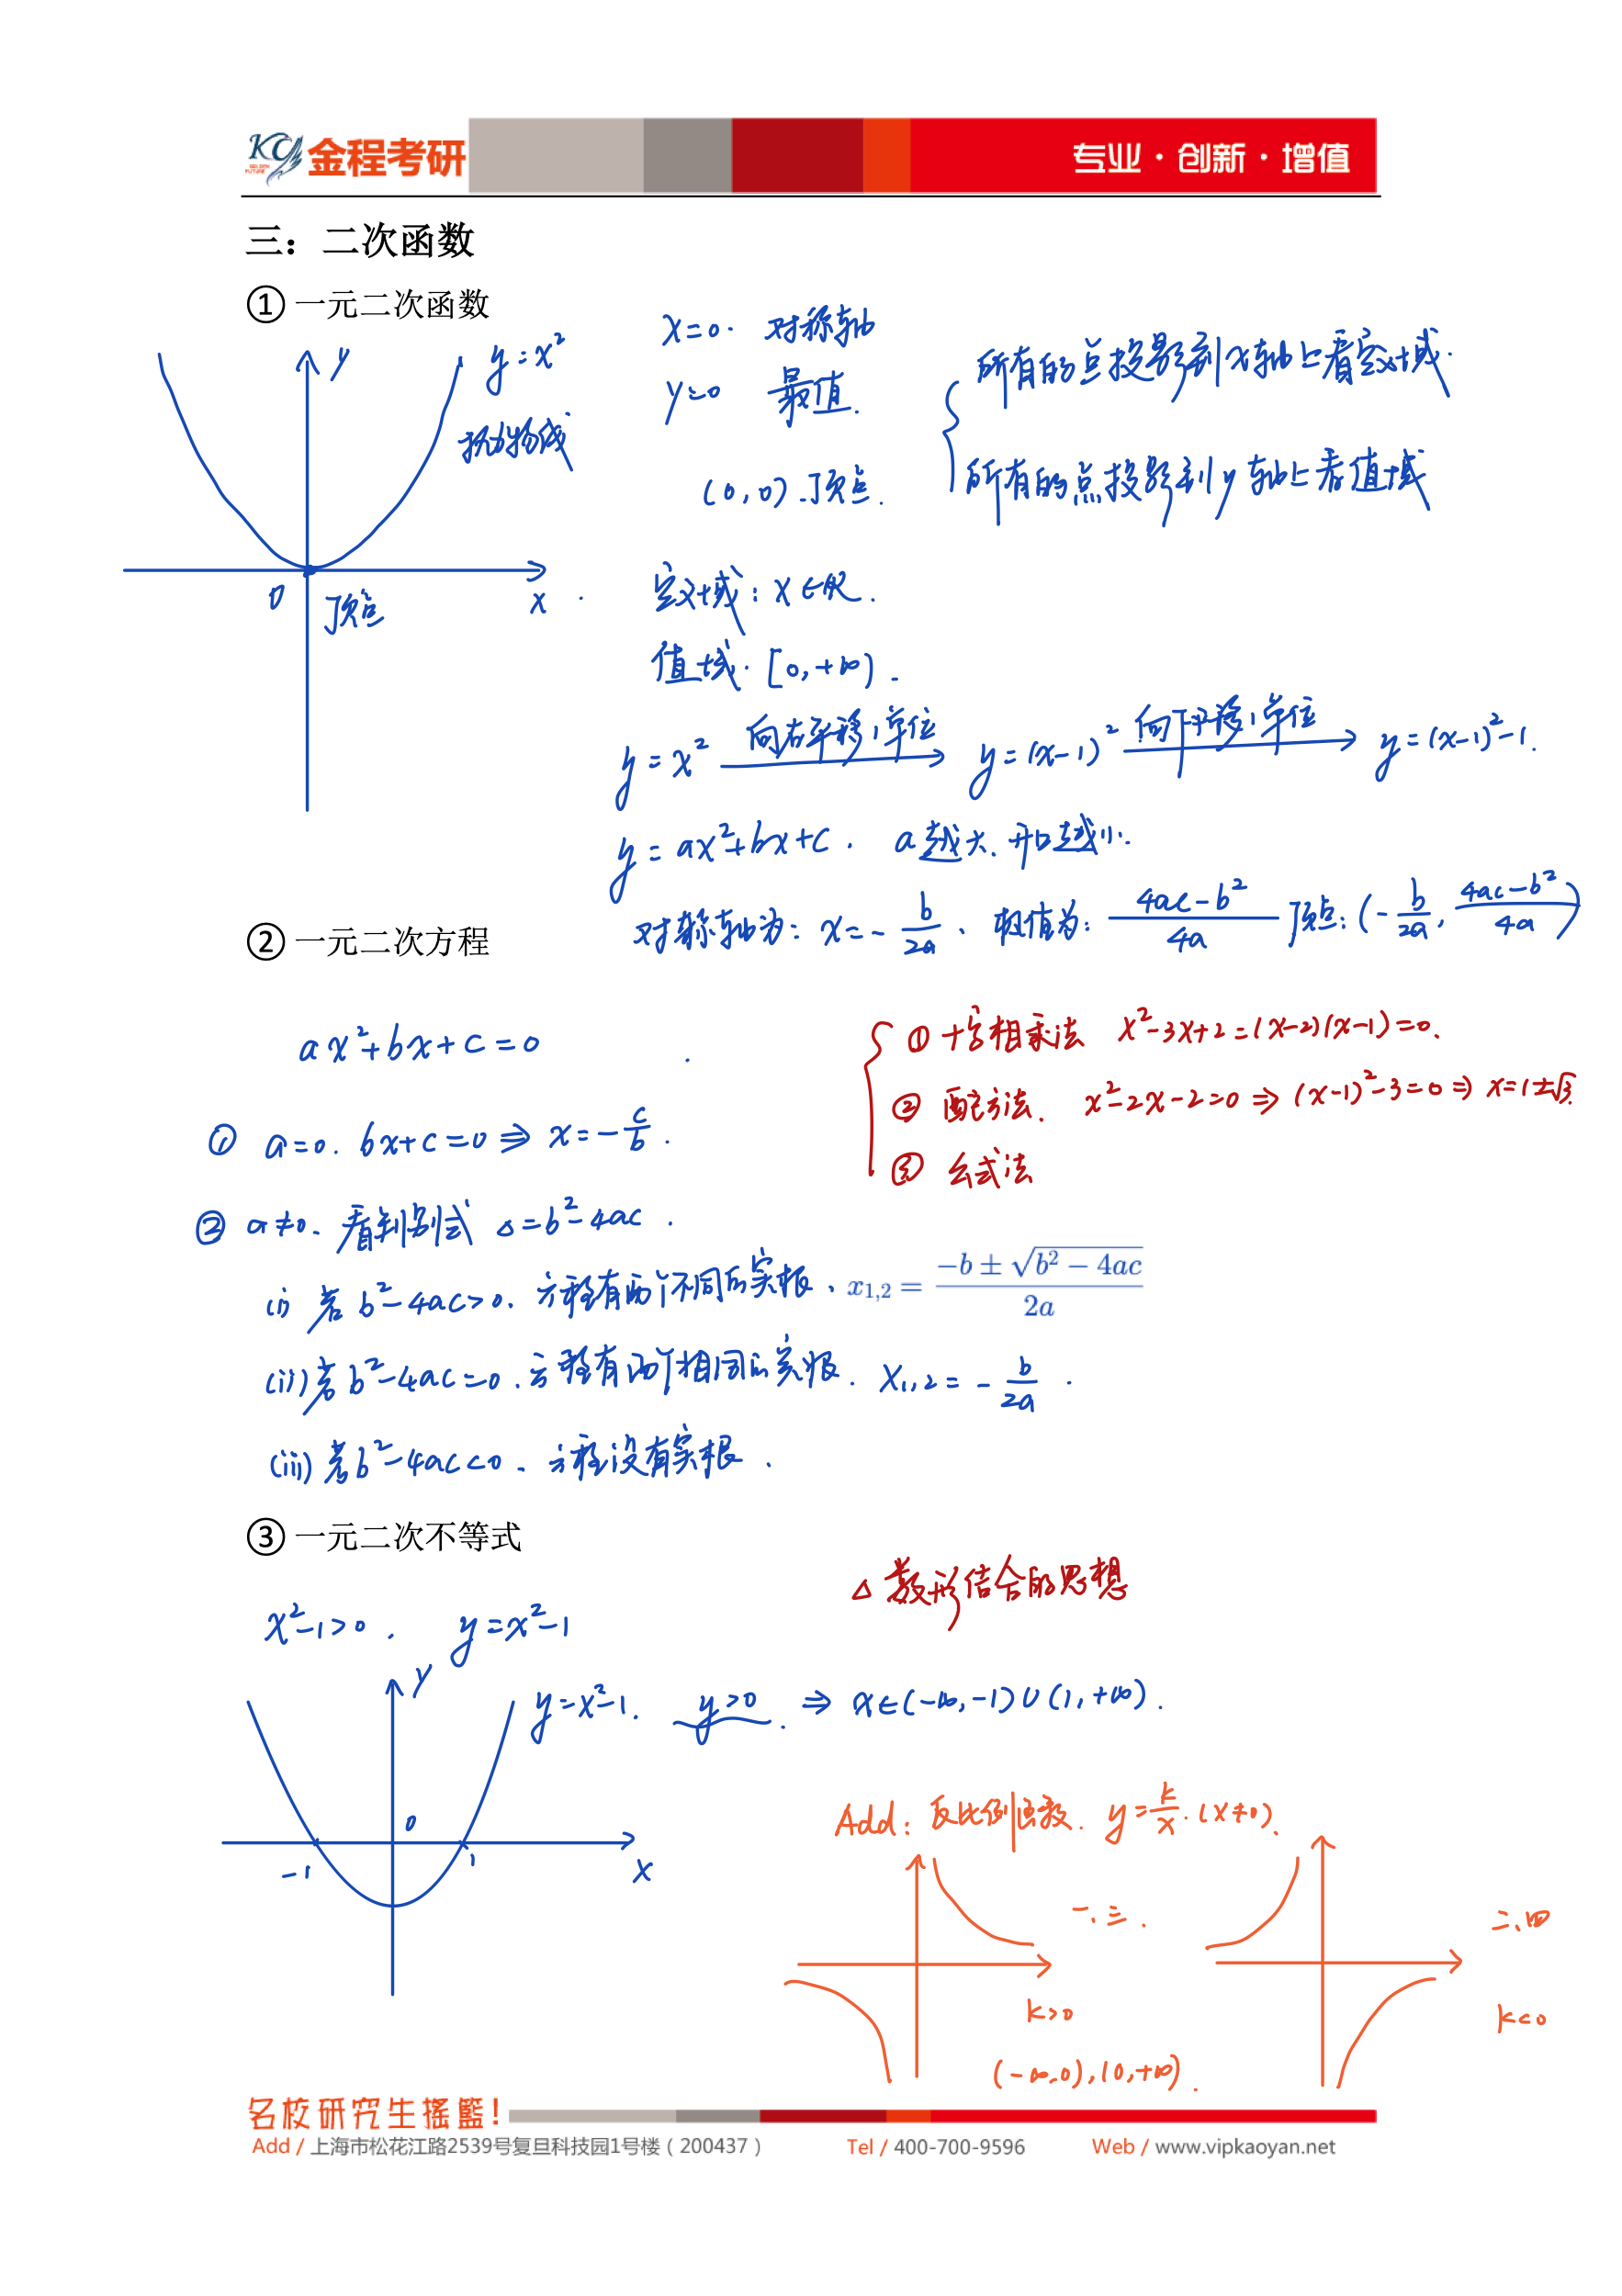 KC GOLDEN FUTURE 金程考研 专业·创新·增值
三：二次函数
① 一元二次函数
y
y=x²
抛物线
0
顶点
x
x=0. 对称轴
y=0 最值.
(0,0) 顶点.
所有的点投影到x轴上看定义域.
所有的点投影到y轴上看值域
定义域：x∈R.
值域. [0,+∞).
y=x² 向右平移1单位 y=(x-1)² 向下平移1单位 y=(x-1)²-1.
y=ax²+bx+c. a越大. 开口越小.
对称轴为：x=-b/2a、极值为：(4ac-b²)/4a 顶点：(-b/2a, (4ac-b²)/4a)
② 一元二次方程
ax²+bx+c=0
① 十字相乘法 x²-3x+2=(x-2)(x-1)=0.
② 配方法. x²-2x-2=0 ⇒ (x-1)²-3=0 ⇒ x=1±√3.
③ 公式法
① a=0. bx+c=0 ⇒ x=-c/b.
② a≠0. 看判别式 △=b²-4ac.
(i) 若 b²-4ac>0. 方程有两个不同的实根、x₁,₂ = (-b ± √(b² - 4ac))/2a
(ii) 若 b²-4ac=0. 方程有两个相同的实根. x₁,₂=-b/2a.
(iii) 若 b²-4ac<0、方程没有实根.
③ 一元二次不等式
△ 数形结合的思想
x²-1>0. y=x²-1
y
0
-1
1
x
y=x²-1. y>0. ⇒ x∈(-∞,-1)∪(1,+∞).
Add: 反比例函数. y=k/x. (x≠0).
一、三.
k>0
(-∞,0),(0,+∞).
二、四
k<0
名校研究生摇篮!
Add / 上海市松花江路2539号复旦科技园1号楼（200437） Tel / 400-700-9596 Web / www.vipkaoyan.net